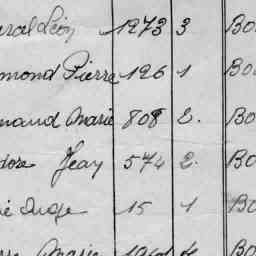 Léon 1273 3 Bo
mond Pierre 126 1 Bo
naud Marie 808 2. Bo
dore Jean 574 2. Bo
é Ange 15 1 Bo
Marie Bo